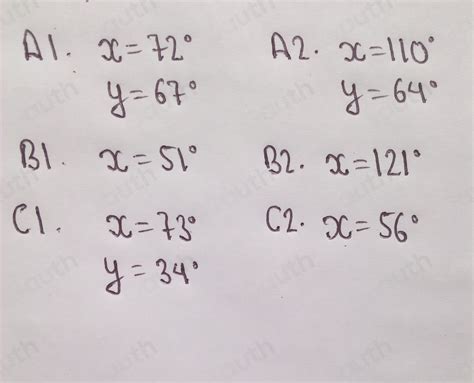 A1. x=72° A2. x=110°
y=67° y=64°
B1. x=51° B2. x=121°
C1. x=73° C2. x=56°
y=34°